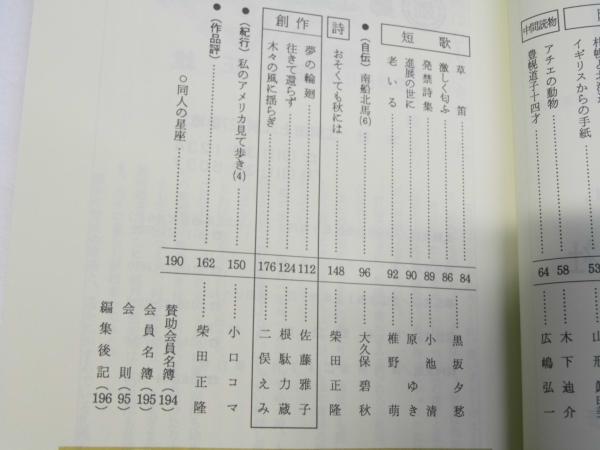 中間読物
イギリスからの手紙 53
アチエの動物 58 木下迪介
豊幌道子十四才 64 広嶋弘一
短歌
草笛 84 黒坂夕愁
激しく匂ふ 86
発禁詩集 89 小池清
進展の世に 90 原ゆき
老いる 92 椎野萌
●(自伝) 南船北馬(6) 96 大久保碧秋
詩
おそくても秋には 148 柴田正隆
創作
夢の輪廻 112 佐藤雅子
往きて還らず 124 根駄力蔵
木々の風に揺らぎ 176 二俣えみ
●(紀行) 私のアメリカ見て歩き(4) 150 小口コマ
●(作品評) 162 柴田正隆
○同人の星座 190
賛助会員名簿(194)
会員名簿(195)
会則(95)
編集後記(196)